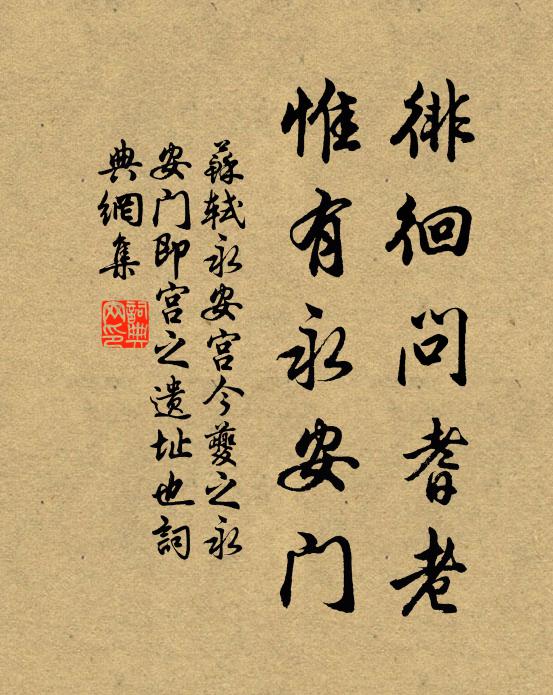 徘徊問耆老
惟有永安門
蘇軾永安宮今夔之永
安门即宫之遗址也詞
典網集
詞典
网印